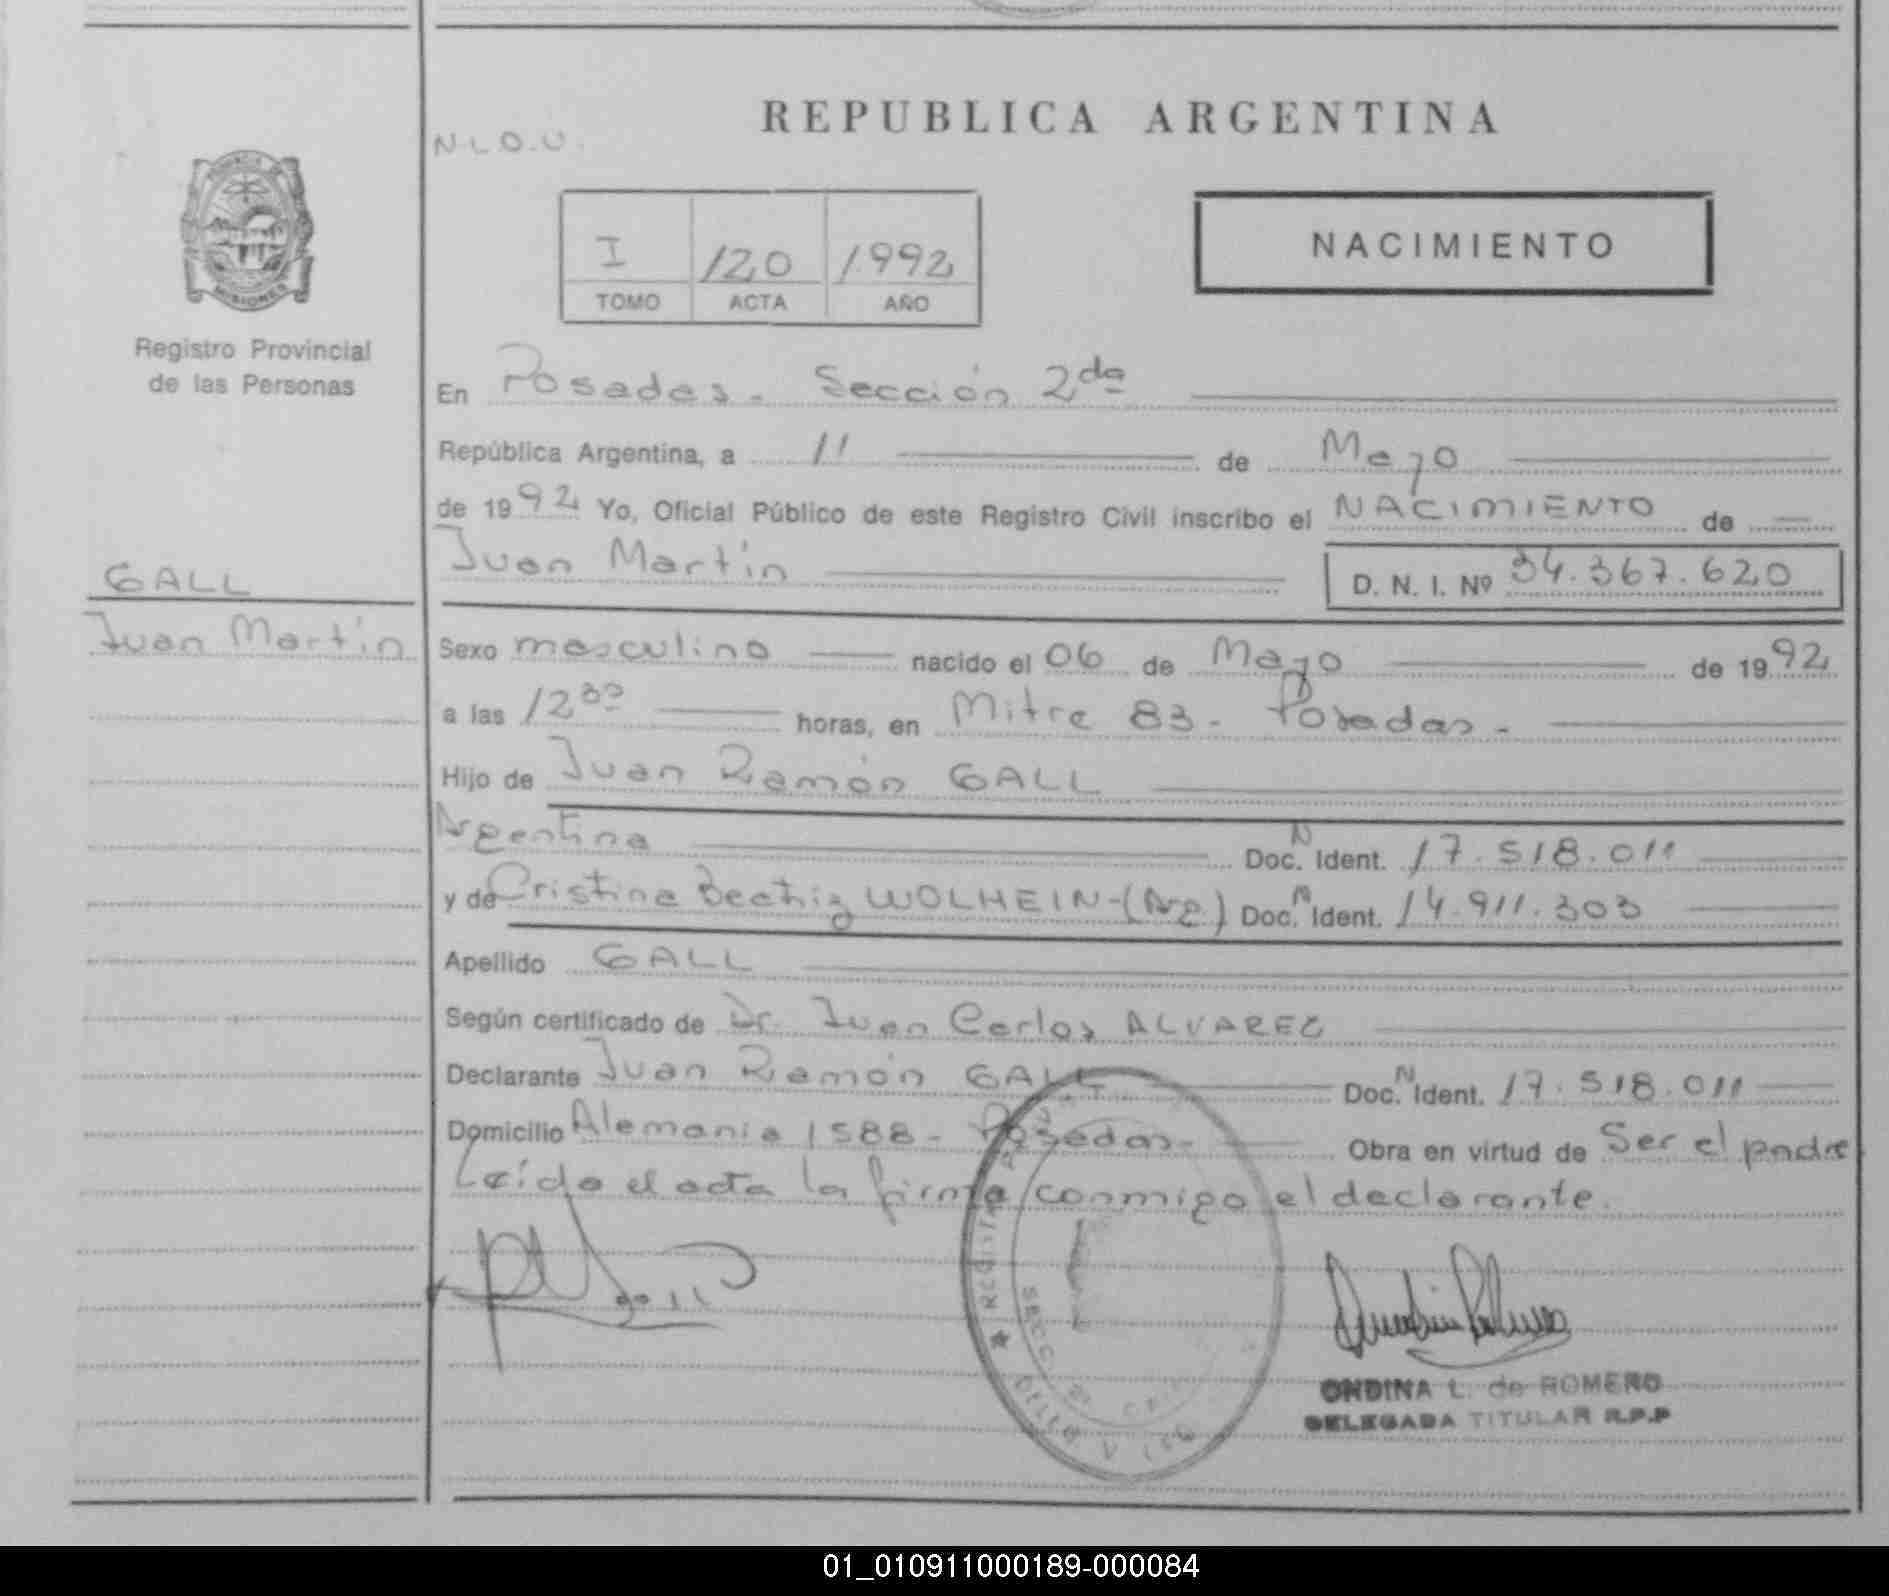 REPUBLICA ARGENTINA
N.L.O.U.
MISIONES
Registro Provincial
de las Personas
I 120 1992
TOMO ACTA AÑO
NACIMIENTO
En Posadas - Sección 2da
República Argentina, a 11 de Mayo
de 1992 Yo, Oficial Público de este Registro Civil inscribo el NACIMIENTO de
Juan Martín D. N. I. Nº 34.367.620
GALL
Juan Martín
Sexo masculino nacido el 06 de Mayo de 1992
a las 12 30 horas, en Mitre 83 - Posadas -
Hijo de Juan Ramón GALL
Argentina Doc. N Ident. 17.518.011
y de Cristina Beatriz WOLHEIN - (Arg.) Doc. N Ident. 14.911.303
Apellido GALL
Según certificado de Dr. Juan Carlos ALVAREZ
Declarante Juan Ramón GALL Doc. N Ident. 17.518.011
Domicilio Alemania 1588 - Posadas - Obra en virtud de Ser el padre
Leído el acta la firma conmigo el declarante.
ONDINA L. de ROMERO
DELEGADA TITULAR R.P.P
01_010911000189-000084